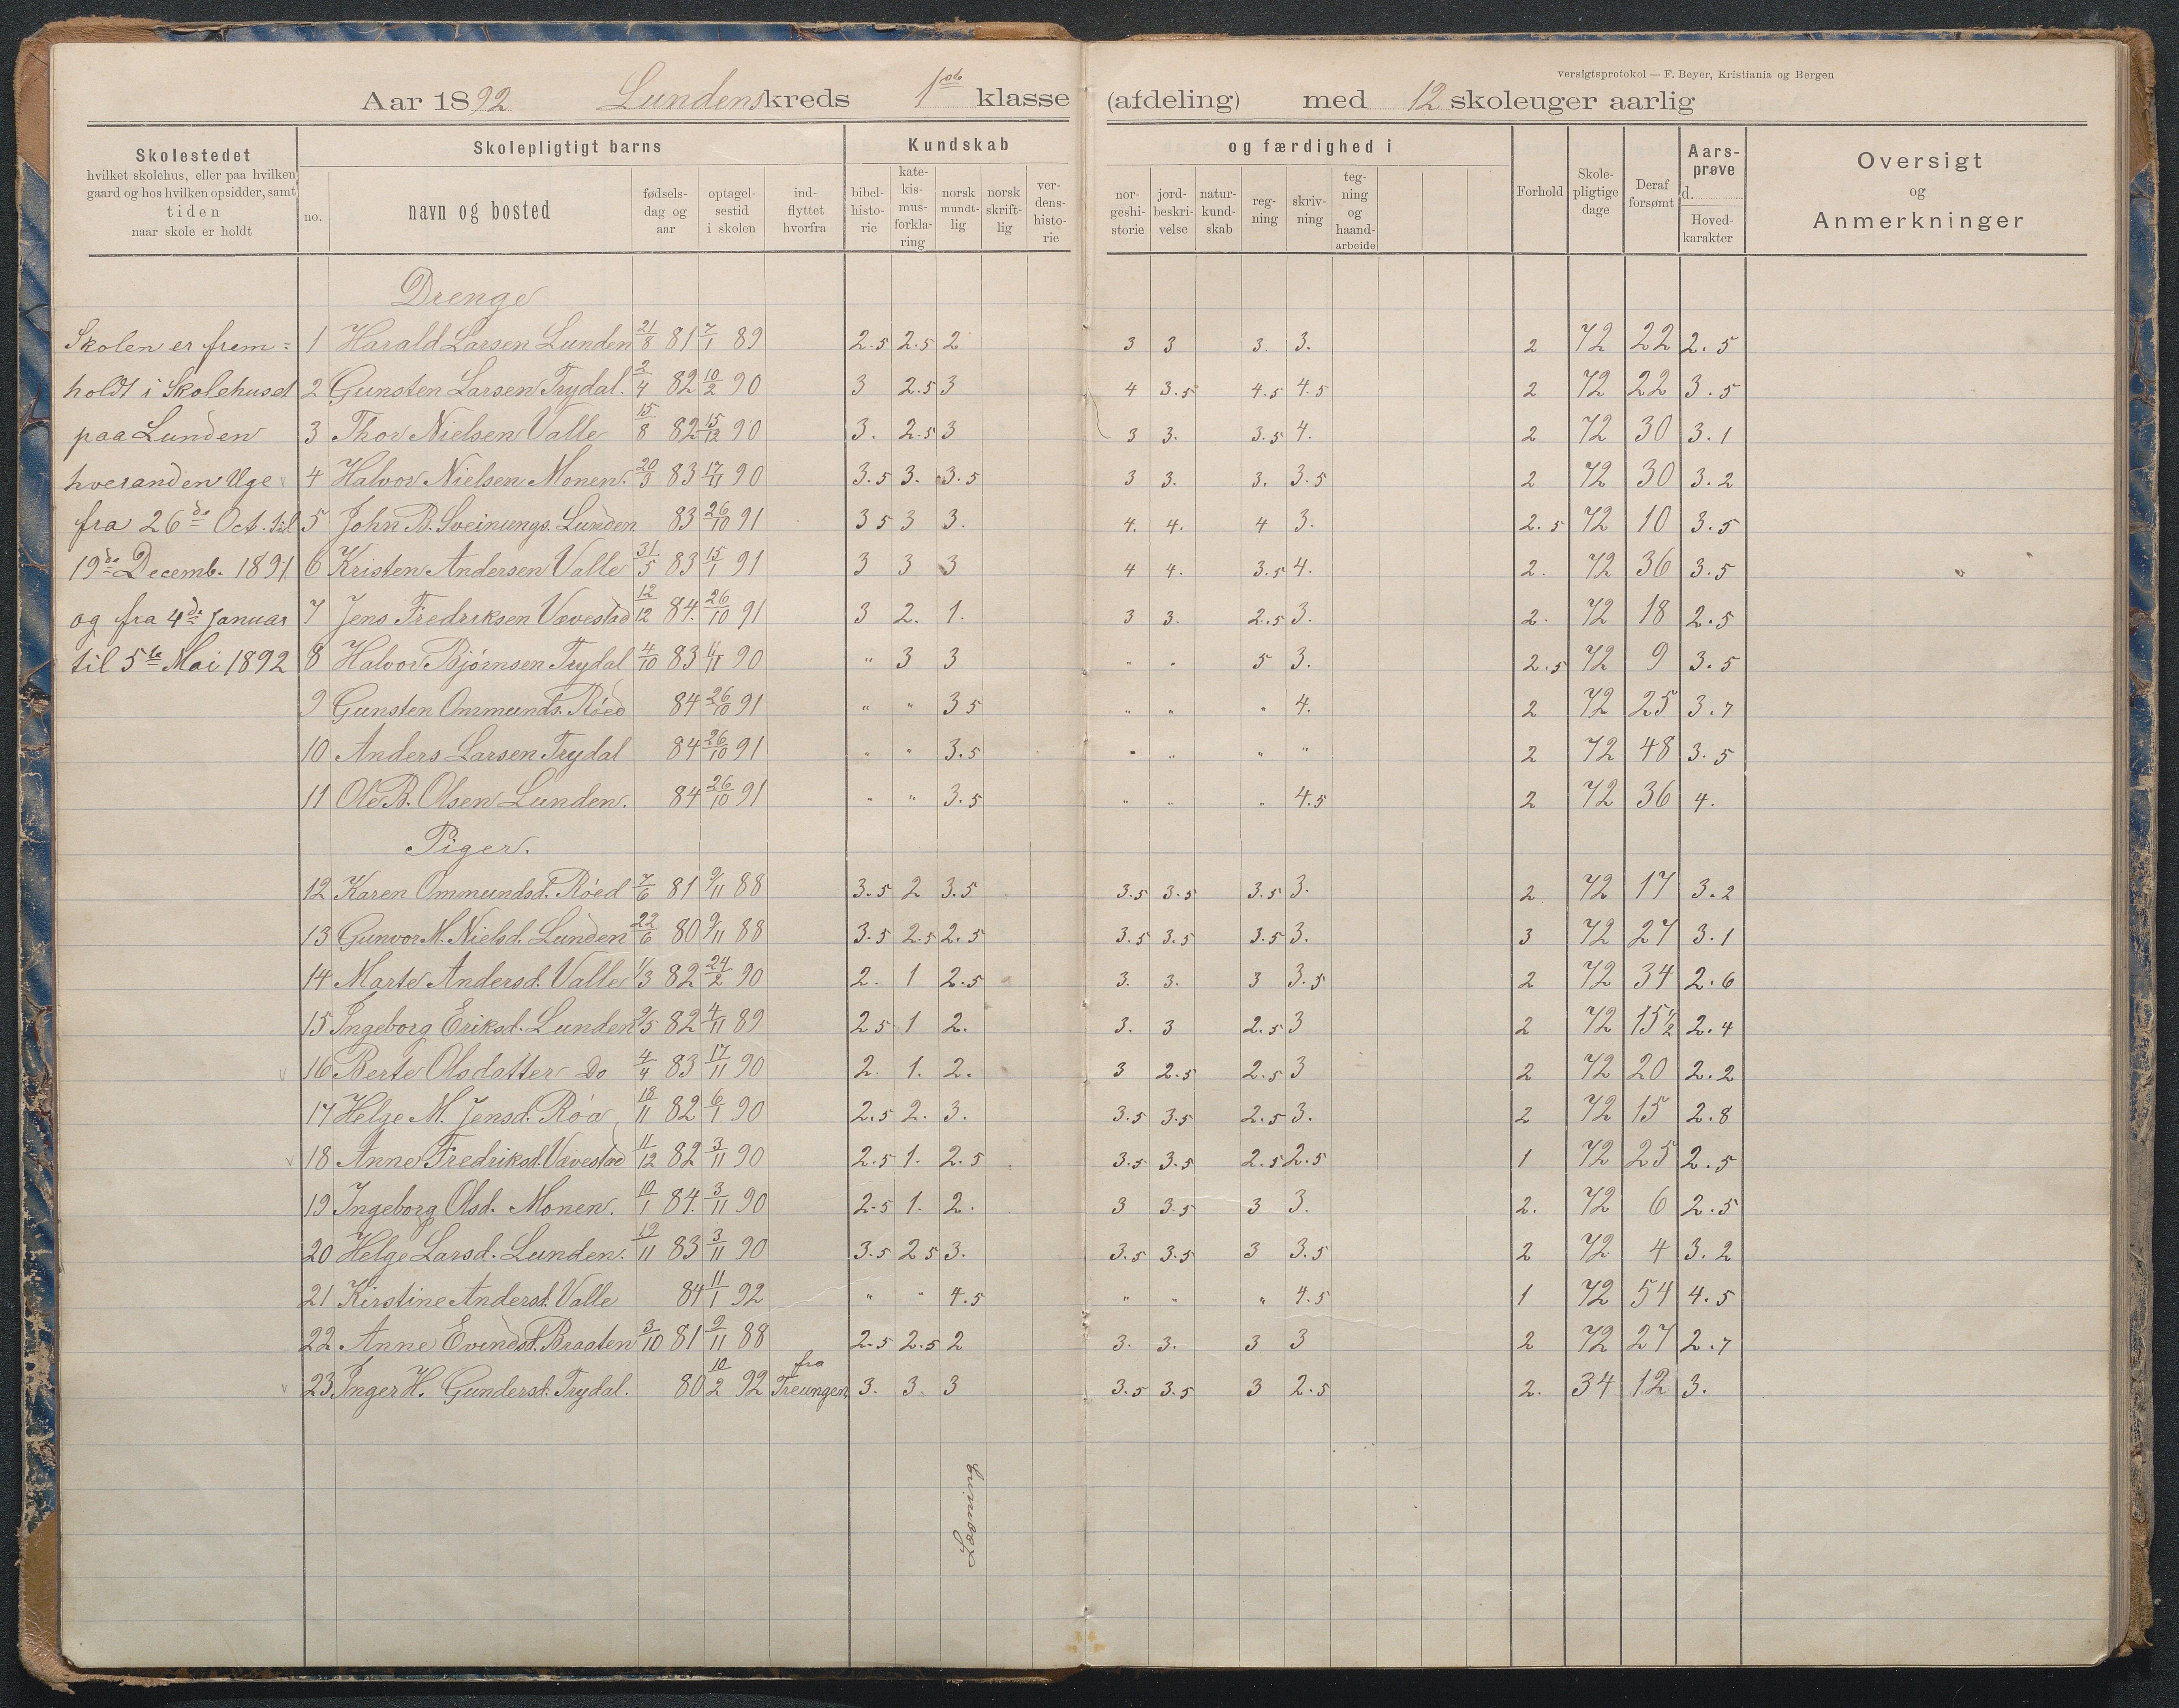 versigtsprotokol — F. Beyer, Kristiania og Bergen
Aar 1892 Lundens kreds 1ste klasse (afdeling) med 12 skoleuger aarlig
Skolestedet
hvilket skolehus, eller paa hvilken
gaard og hos hvilken opsidder, samt
tiden
naar skole er holdt
Skolepligtigt barns
no.
navn og bosted
fødsels-
dag og
aar
optagel-
sestid
i skolen
ind-
flyttet
hvorfra
Kundskab
bibel-
histo-
rie
kate-
kis-
mus-
forkla-
ring
norsk
mundt-
lig
norsk
skrift-
lig
ver-
dens-
histo-
rie
og færdighed i
nor-
geshi-
storie
jord-
beskri-
velse
natur-
kund-
skab
reg-
ning
skriv-
ning
teg-
ning
og
haand-
arbeide
Forhold
Skole-
pligtige
dage
Deraf
forsømt
Aars-
prøve
d.
Hoved-
karakter
Oversigt
og
Anmerkninger
Drenge
Skolen er frem= 1 Harald Larsen Lunden 21/8 81 7/1 89 2.5 2.5 2 3 3 3. 3. 2 72 22 2.5
holdt i Skolehuset 2 Gunsten Larsen Trydal. 2/4 82 10/2 90 3 2.5 3 4 3.5 4.5 4.5 2 72 22 3.5
paa Lunden 3 Thor Nielsen Valle 15/8 82 15/12 90 3. 2.5 3 3 3. 3.5 4. 2 72 30 3.1
hveranden Uge 4 Halvor Nielsen Monen. 20/3 83 17/11 90 3.5 3. 3.5 3 3. 3. 3.5 2 72 30 3.2
fra 26de Oct. til 5 John B. Sveinungs. Lunden 83 26/10 91 3 5 3 3. 4. 4. 4 3. 2.5 72 10 3.5
19de Decemb. 1891 6 Kristen Andersen Valle 31/5 83 15/1 91 3 3 3 4 4. 3.5 4. 2. 72 36 3.5
og fra 4de Januar 7 Jens Fredriksen Vævestad 12/12 84. 26/10 91 3 2. 1. 3 3. 2.5 3. 2. 72 18 2.5
til 5te Mai 1892 8 Halvor Bjørnsen Trydal 4/10 83 11/11 90 " 3 3 " " 5 3. 2.5 72 9 3.5
9 Gunsten Ommunds. Röed 84 26/10 91 " " 3 5 " " " 4. 2 72 25 3.7
10 Anders Larsen Trydal 84 26/10 91 " " 3.5 " " " " 2 72 48 3.5
11 Ole B. Olsen Lunden. 84 26/10 91 " " 3.5 " " " 4.5 2 72 36 4.
Piger.
12 Karen Ommundsd. Röed 7/6 81 9/11 88 3.5 2 3.5 3.5 3.5 3.5 3. 2 72 17 3.2
13 Gunvor M. Nielsd. Lunden 22/6 80 9/11 88 3.5 2.5 2.5 3.5 3.5 3.5 3. 3 72 27 3.1
14 Marte Andersd. Valle 1/3 82 24/2 90 2. 1 2.5 3. 3. 3 3.5 2 72 34 2.6
15 Ingeborg Eriksd. Lunden 9/5 82 4/11 89 2 5 1 2. 3. 3 2.5 3 2 72 15½ 2.4
16 Berte Olsdatter Do 4/4 83 17/11 90 2. 1. 2. 3 2.5 2.5 3 2 72 20 2.2
17 Helge M. Jensd. Röa 18/11 82 6/1 90 2.5 2. 3. 3.5 3.5 2.5 3. 2 72 15 2.8
18 Anne Fredriksd. Vævestad 11/12 82 3/11 90 2.5 1. 2.5 3.5 3.5 2.5 2.5 1 72 25 2.5
19 Ingeborg Olsd. Monen. 10/1 84. 3/11 90 2.5 1. 2. 3 3.5 3 3. 2. 72 6 2.5
20 Helge Larsd. Lunden. 19/11 83 3/11 90 3.5 2 5 3. 3.5 3.5 3 3.5 2 72 4 3.2
21 Kirstine Andersd. Valle 84 11/1 92 " " 4.5 " " " 4.5 1 72 54 4.5
22 Anne Evindsd. Braaten 3/10 81 9/11 88 2.5 2.5 2 3. 3. 3 3 2 72 27 2.7
23 Inger H. Gundersd. Trydal. 80 10/2 92 fra Treungen 3. 3. 3 3.5 3.5 3 2.5 2. 34 12 3.
Læsning